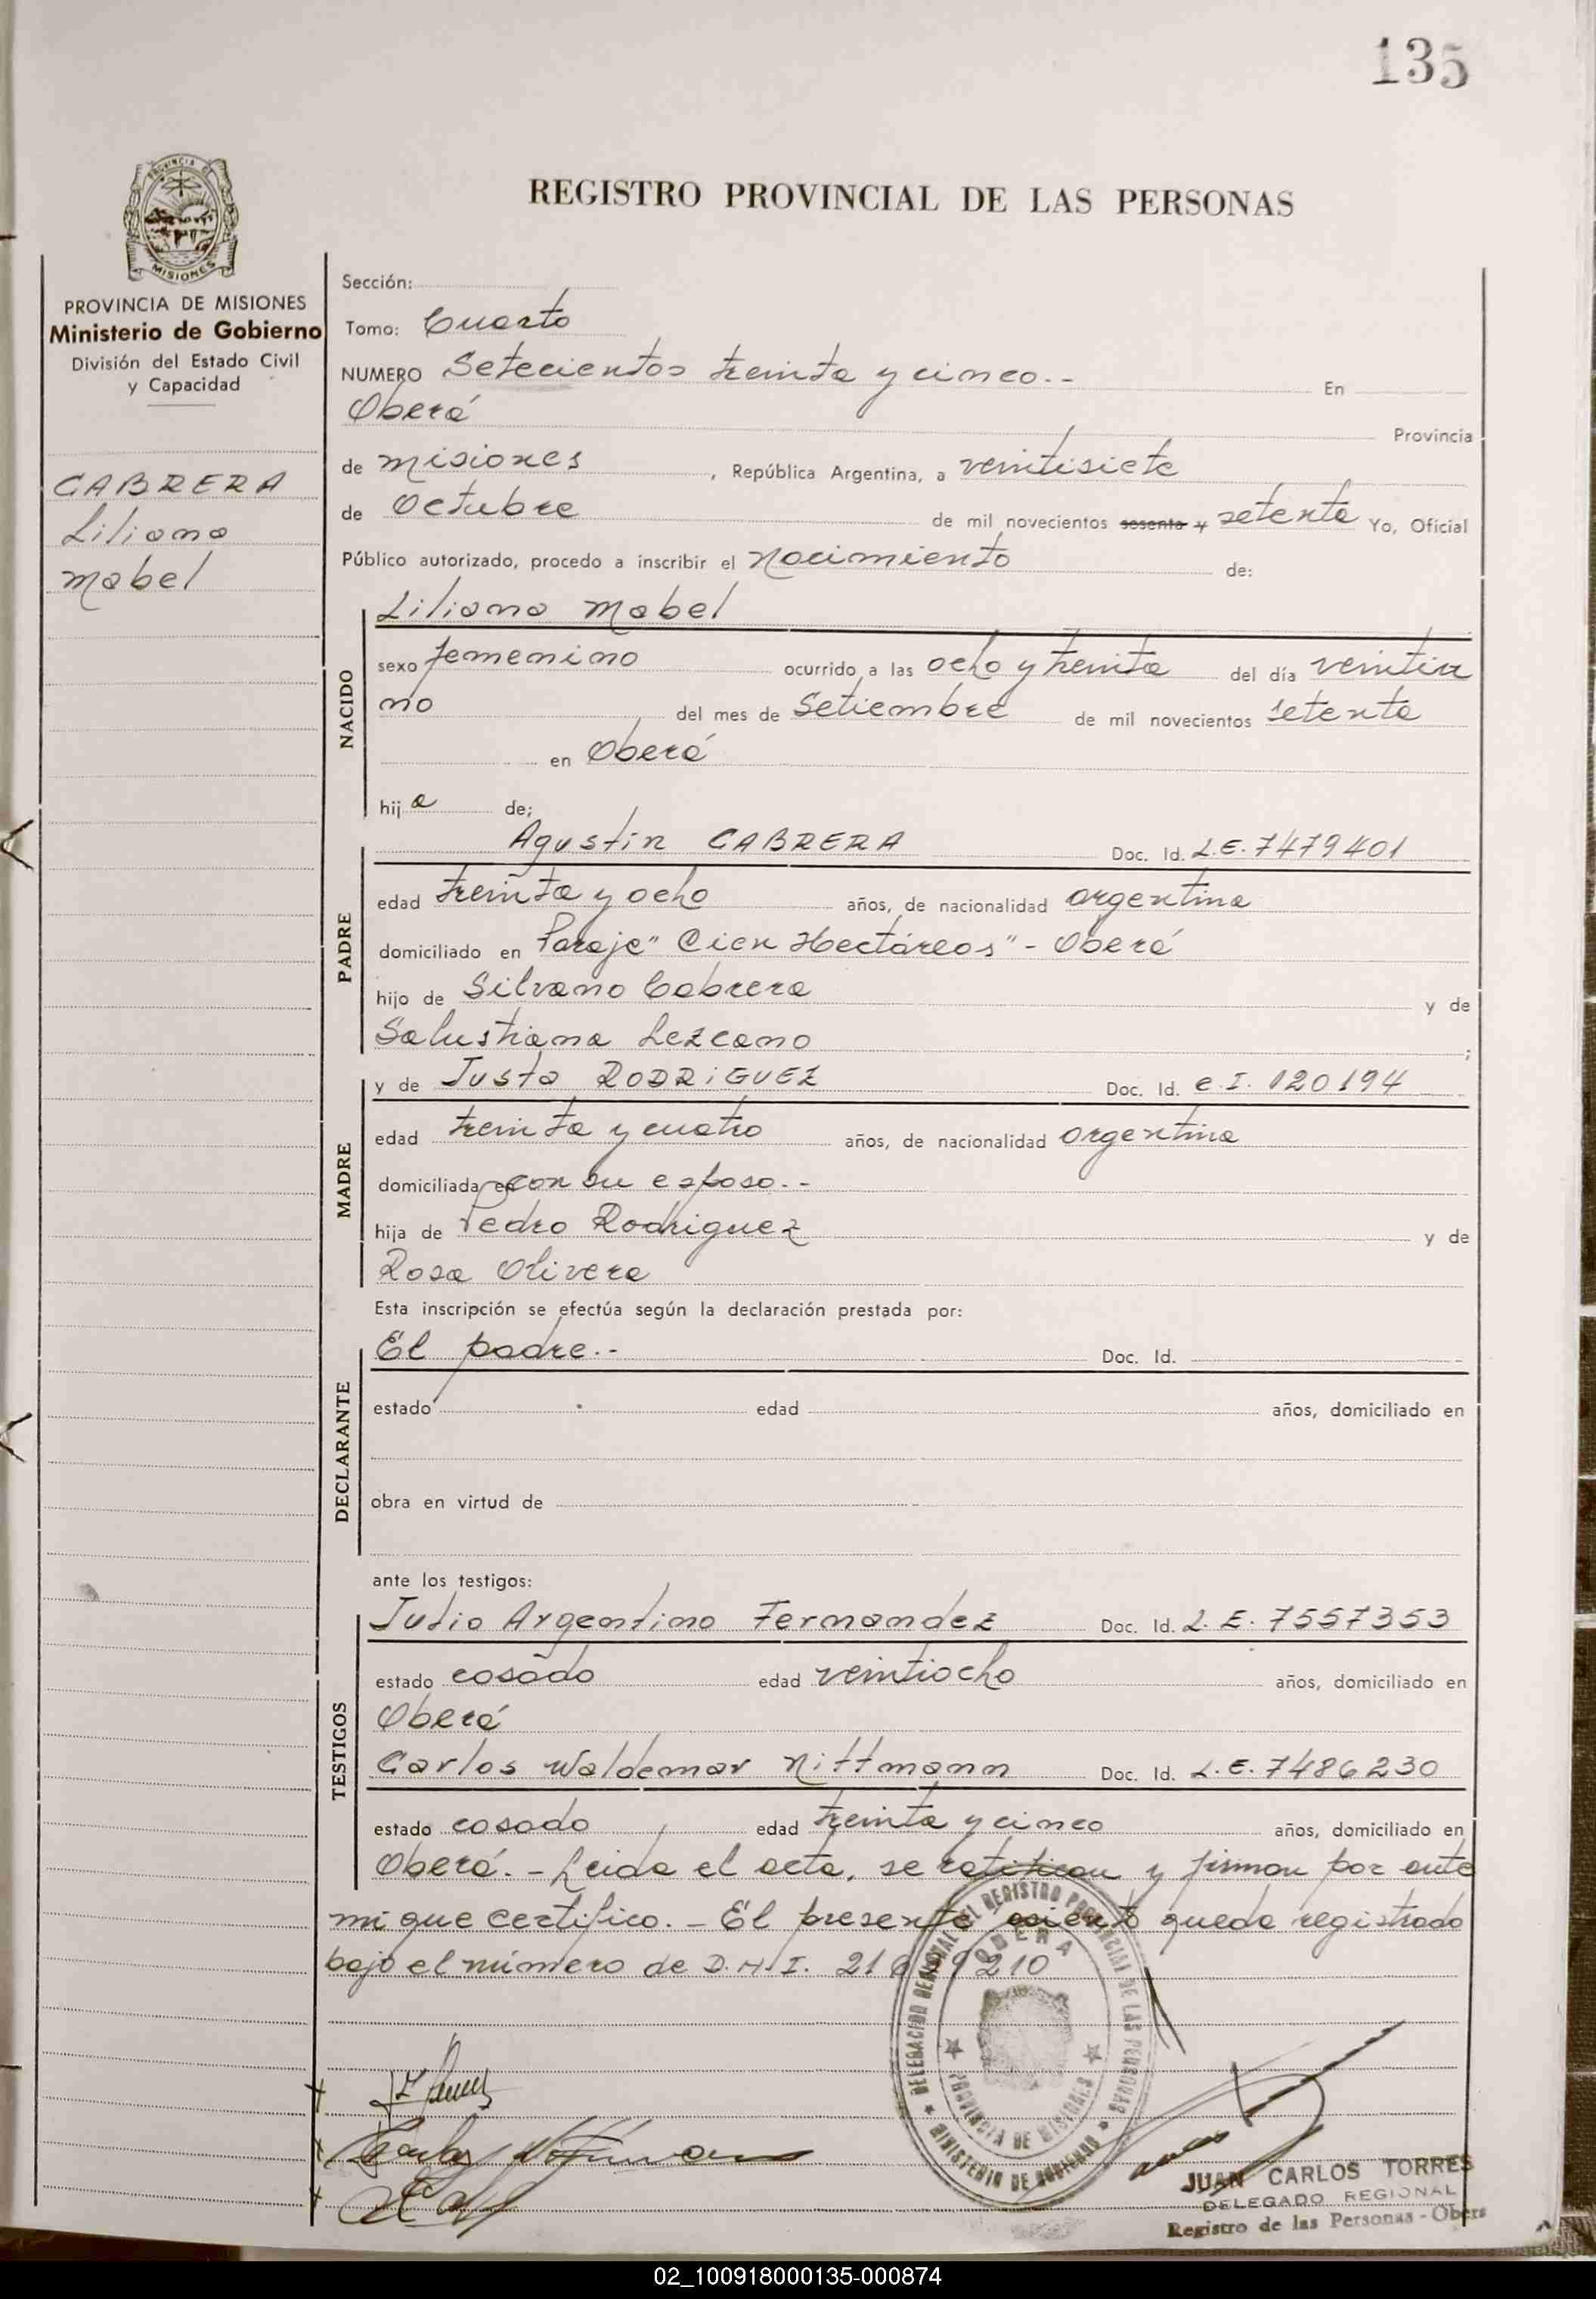 135
REGISTRO PROVINCIAL DE LAS PERSONAS
MISIONES
PROVINCIA DE MISIONES
Ministerio de Gobierno
División del Estado Civil
y Capacidad
CABRERA
Liliana
Mabel
Sección:
Tomo: Cuarto
NUMERO Setecientos treinta y cinco.- En
Oberá Provincia
de Misiones, República Argentina, a veintisiete
de Octubre de mil novecientos sesenta y setenta Yo, Oficial
Público autorizado, procedo a inscribir el Nacimiento de:
NACIDO
Liliana Mabel
sexo femenino ocurrido a las ocho y treinta del día veintiu
no del mes de Setiembre de mil novecientos setenta
en Oberá
hija de;
PADRE
Agustín CABRERA Doc. Id. L.E. 7479401
edad treinta y ocho años, de nacionalidad argentina
domiciliado en Paraje "Cien Hectáreas" - Oberá
hijo de Silvano Cabrera y de
Salustiana Lezcano ;
MADRE
y de Justa RODRIGUEZ Doc. Id. C.I. 120194
edad treinta y cuatro años, de nacionalidad argentina
domiciliada en con su esposo.-
hija de Pedro Rodriguez y de
Rosa Olivera
Esta inscripción se efectúa según la declaración prestada por:
DECLARANTE
El padre.- Doc. Id.
estado edad años, domiciliado en
obra en virtud de
ante los testigos:
TESTIGOS
Julio Argentino Fernandez Doc. Id. L.E. 7557353
estado casado edad veintiocho años, domiciliado en
Oberá
Carlos Waldemar Nittmann Doc. Id. L.E. 7486230
estado casado edad treinta y cinco años, domiciliado en
Oberá.- Leida el acta, se ratifican y firman por ante
mi que certifico.- El presente asiento queda registrado
bajo el número de D.N.I. 21 210
DELEGACION REGIONAL DEL REGISTRO PROVINCIAL DE LAS PERSONAS
OBERA
PROVINCIA DE MISIONES
MINISTERIO DE GOBIERNO
JUAN CARLOS TORRES
DELEGADO REGIONAL
Registro de las Personas - Oberá
02_100918000135-000874